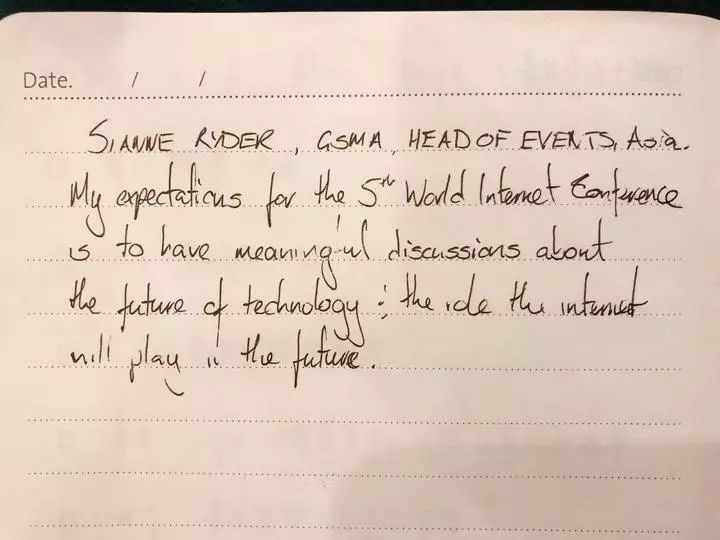 Date. / /
SIANNE RYDER, GSMA, HEAD OF EVENTS, Asia.
My expectations for the 5th World Internet Conference
is to have meaningful discussions about
the future of technology & the role the internet
will play in the future.